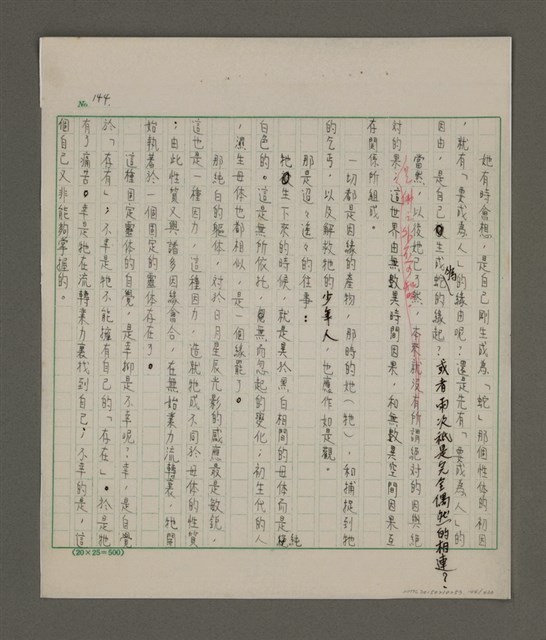 No. 144.
她有時會想，是自己剛生成為「蛇」那個性体的初因
，就有「要成為人」的緣由呢？還是先有「要成為人」的
因由，是自己生成蛇的緣起？或者兩次祇是完全偶然的相連？
當然，以後她已了然，本來就沒有所謂絕對的因與絕
對的果，這世界由無數異時間因果，和無數異空間因果互
存關係所組成。
一切都是因緣的產物，那時的她（牠），和捕捉到牠
的乞丐，以及解救牠的少年人，也應作如是觀。
那是迢迢遠遠的往事：
牠生下來的時候，就是異於黑白相間的母体而是純
白色的。這是無所依托，憑無而忽起的變化；初生代的人
，濕生母体也都相似，是一個緣罷了。
那純白的軀体，對於日月星辰光影的感應最是敏銳，
這也是一種因力，這種因力，造就牠成不同於母体的性質
；由此性質又與諸多因緣會合，在無始業力流轉裏，牠開
始執著於一個固定的靈体存在了。
這種固定靈体的自覺，是幸抑是不幸呢？幸，是自覺
於「存有」；不幸是牠不能擁有自己的「存在」。於是牠
有了痛苦。幸是牠在流轉業力裏找到自己；不幸的是，這
個自己又非能夠掌握的。
(20×25=500)